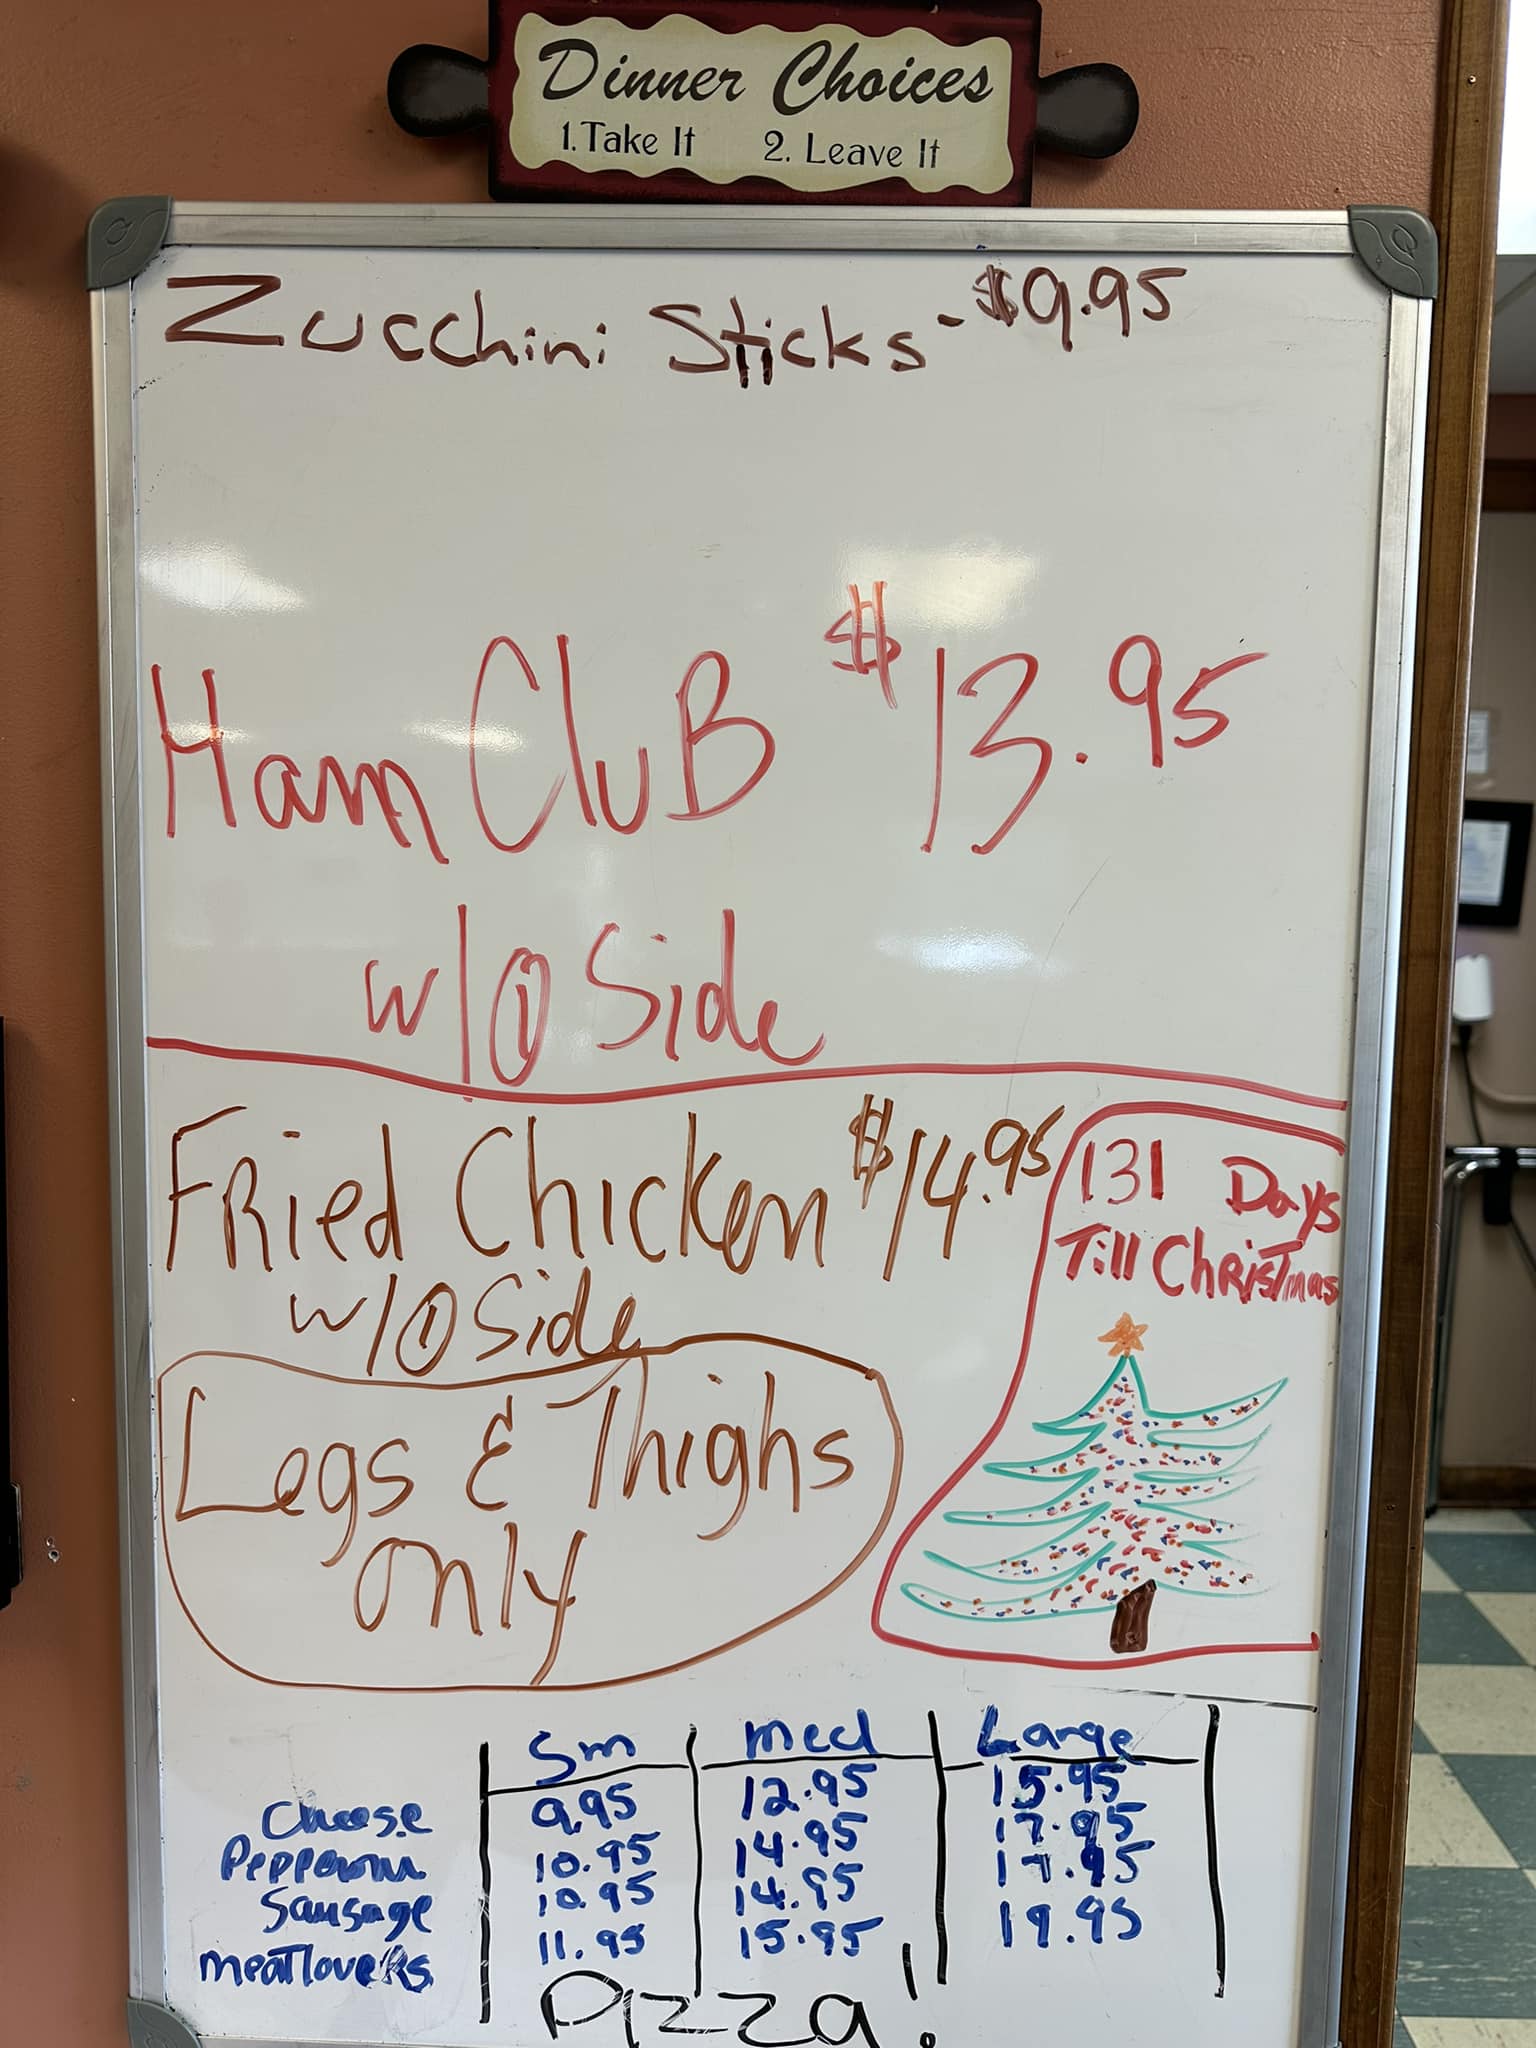 Dinner Choices
1. Take It 2. Leave It
Zucchini Sticks - $9.95
Ham CluB $13.95
w/① Side
FRied Chicken $14.95
w/① Side
Legs & Thighs
only
131 Days
Till ChRisTmas
Sm Med Large
Cheese 9.95 12.95 15.95
Pepperoni 10.95 14.95 17.95
Sausage 10.95 14.95 17.95
meatloveRs 11.95 15.95 19.95
Pizza!